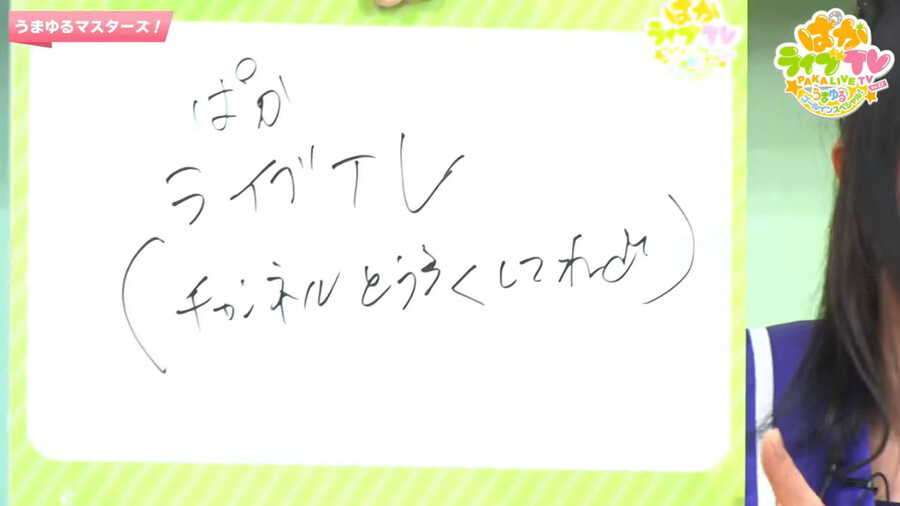 うまゆるマスターズ!
ぱか
ライブTV
PAKA LIVE TV
うまゆる
ゴールインスペシャル!
ぱか
ライブTレ
(チャンネルとうろくしてね♪)